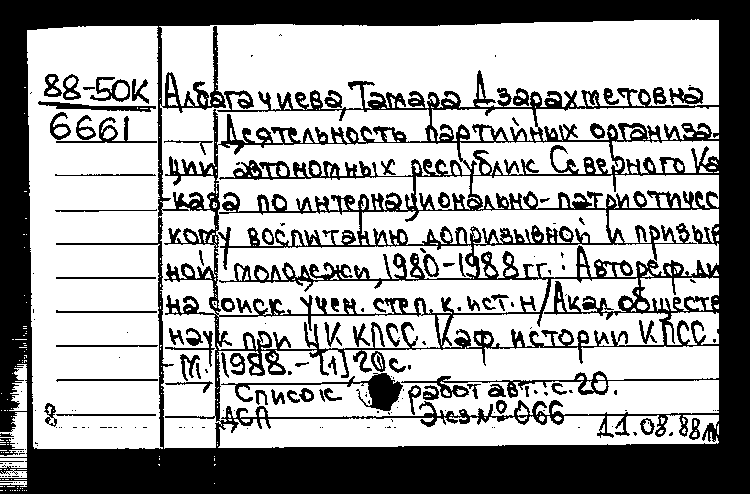 88-50К Албагачиева, Тамара Дзарахметовна
6661 Деятельность партийных организа-
ций автономных республик Северного Ка
-каза по интернационально-патриотичес
кому воспитанию допризывной и призыв
ной молодежи, 1980-1988 гг.: Автореф. ди
на соиск. учен. степ. к. ист. н/Акад. обществ
наук при ЦК КПСС. Каф. истории КПСС.
- М., 1988.- [1], 20 с.
Список работ авт.: с. 20.
8 ДСП Экз № 066
11.08.88